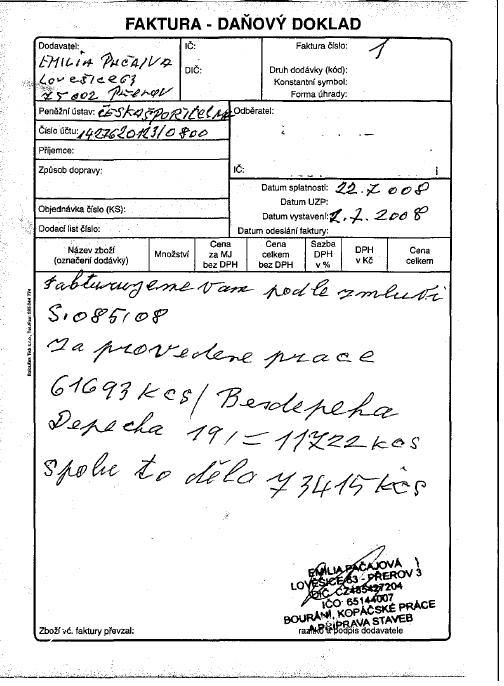 FAKTURA - DAŇOVÝ DOKLAD
Dodavatel:
EMILIA PAČAJVA
Lovešice 63
75002 Přerov
IČ:
DIČ:
Faktura číslo: 1
Druh dodávky (kód):
Konstantní symbol:
Forma úhrady:
Peněžní ústav: ČESKÁ SPOŘITELNA
Číslo účtu: /0800
Příjemce:
Způsob dopravy:
Objednávka číslo (KS):
Dodací list číslo:
Odběratel:
IČ:
Datum splatnosti: 22.7 008
Datum UZP:
Datum vystavení: 2.7.2008
Datum odeslání faktury:
Název zboží (označení dodávky)
Množství
Cena za MJ bez DPH
Cena celkem bez DPH
Sazba DPH v %
DPH v Kč
Cena celkem
Fakturujeme vam podle zmluvi
S.085/08
Za provedene prace
61693 kcs/ Bezdepeha
Depecha 19/= 11722 kcs
Spolu to dělo 73415 kčs
Zboží vč. faktury převzal:
EMILIA PAČAJOVÁ
LOVEŠICE 63 - PŘEROV 3
DIČ: CZ485427204
IČO 65144007
BOURÁNÍ, KOPÁČSKÉ PRÁCE
A PŘÍPRAVA STAVEB
razítko a podpis dodavatele